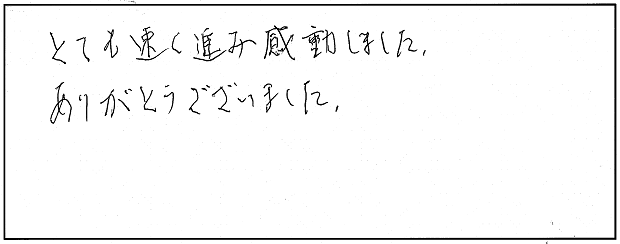 とても速く進み感動しました.
ありがとうございました.